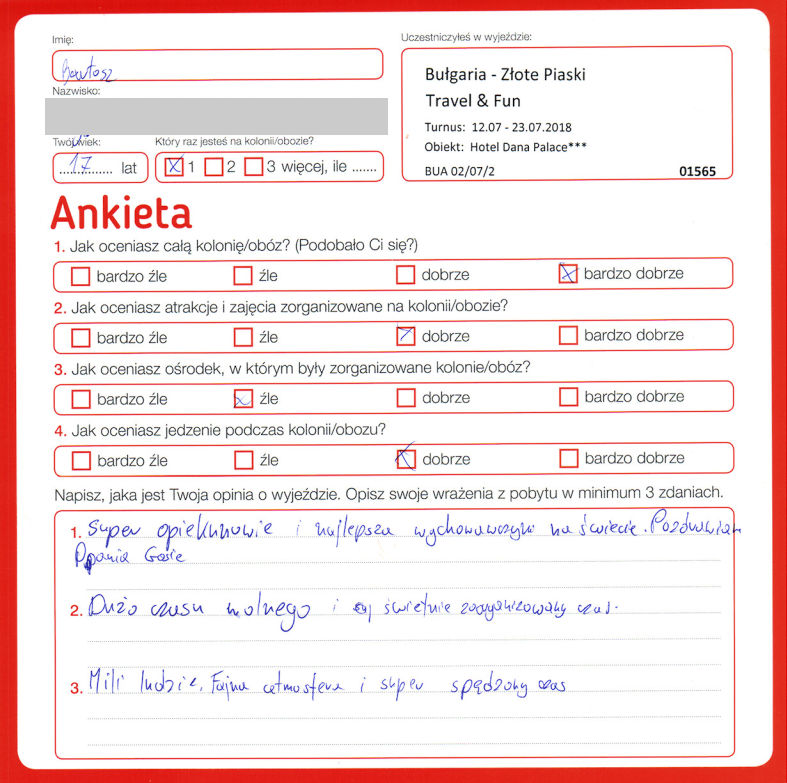 Imię:
Bartosz
Nazwisko:
Twój wiek:
17 lat
Który raz jesteś na kolonii/obozie?
x 1 2 3 więcej, ile .......
Uczestniczyłeś w wyjeździe:
Bułgaria - Złote Piaski
Travel & Fun
Turnus: 12.07 - 23.07.2018
Obiekt: Hotel Dana Palace***
BUA 02/07/2 01565
Ankieta
1. Jak oceniasz całą kolonię/obóz? (Podobało Ci się?)
bardzo źle źle dobrze x bardzo dobrze
2. Jak oceniasz atrakcje i zajęcia zorganizowane na kolonii/obozie?
bardzo źle źle dobrze bardzo dobrze
3. Jak oceniasz ośrodek, w którym były zorganizowane kolonie/obóz?
bardzo źle x źle dobrze bardzo dobrze
4. Jak oceniasz jedzenie podczas kolonii/obozu?
bardzo źle źle x dobrze bardzo dobrze
Napisz, jaka jest Twoja opinia o wyjeździe. Opisz swoje wrażenia z pobytu w minimum 3 zdaniach.
1. Super opiekunowie i najlepsza wychowawczyni na świecie. Pozdrawiam
Panią Gosie
2. Dużo czasu wolnego i świetnie zorganizowany czas.
3. Mili ludzie, Fajna atmosfera i super spędzony czas